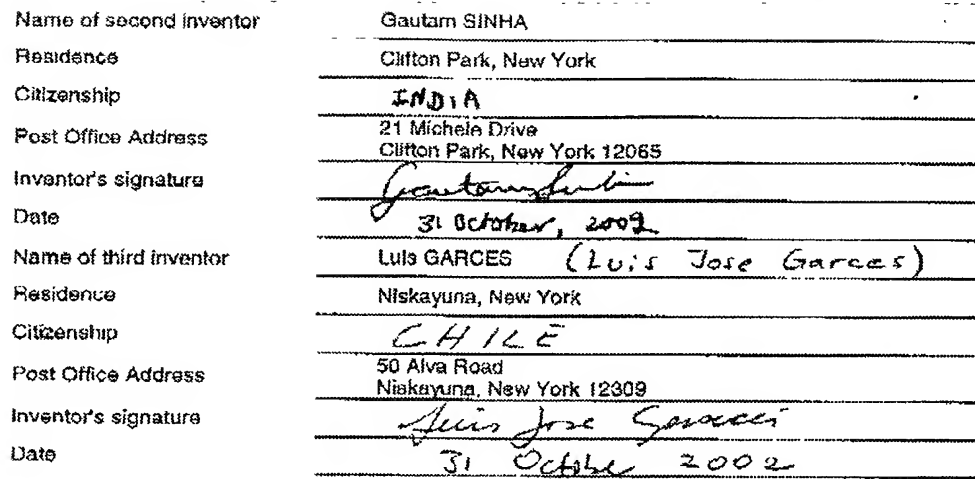 Name of second inventor Gautam SINHA
Residence Clifton Park, New York
Citizenship INDIA
Post Office Address 21 Michele Drive
Clifton Park, New York 12065
Inventor's signature Gautam Sinha
Date 31 October, 2002
Name of third inventor Luis GARCES (Luis Jose Garces)
Residence Niskayuna, New York
Citizenship CHILE
Post Office Address 50 Alva Road
Niskayuna, New York 12309
Inventor's signature Luis Jose Garces
Date 31 October 2002